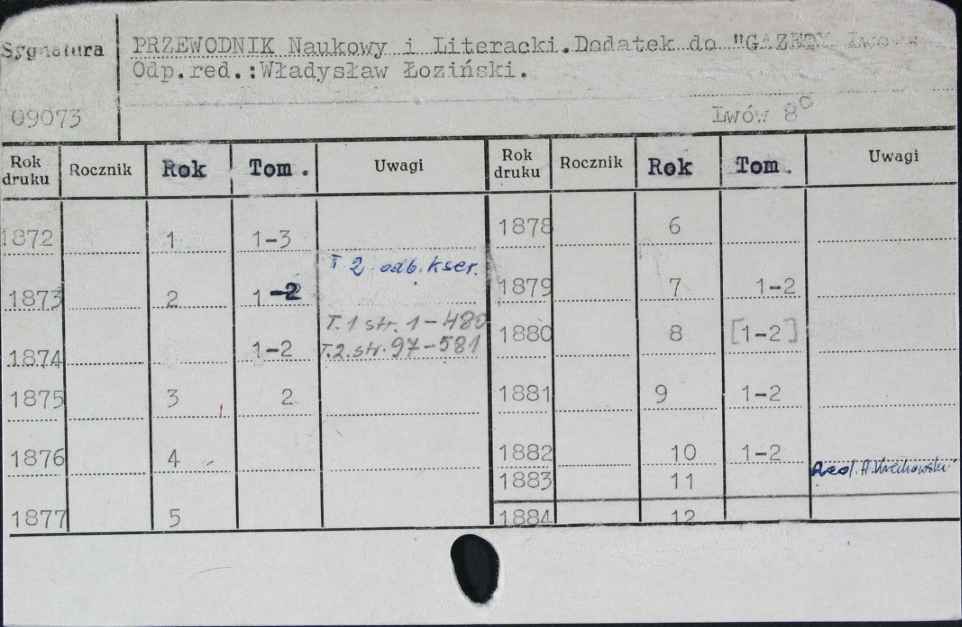 Sygnatura
PRZEWODNIK Naukowy i Literacki.Dodatek do "GAZETY Lwows
Odp.red.:Władysław Łoziński.
09073
Lwów 8°
Rok druku Rocznik Rok Tom. Uwagi Rok druku Rocznik Rok Tom. Uwagi
1872 1 1-3 1878 6
T 2 odb. kser.
1873 2 1-2 1879 7 1-2
T.1 str. 1-480
1880 8 [1-2]
1874 1-2 T.2.str.97-581
1875 3 2 1881 9 1-2
1876 4 1882 10 1-2
1883 11
1877 5 1884 12